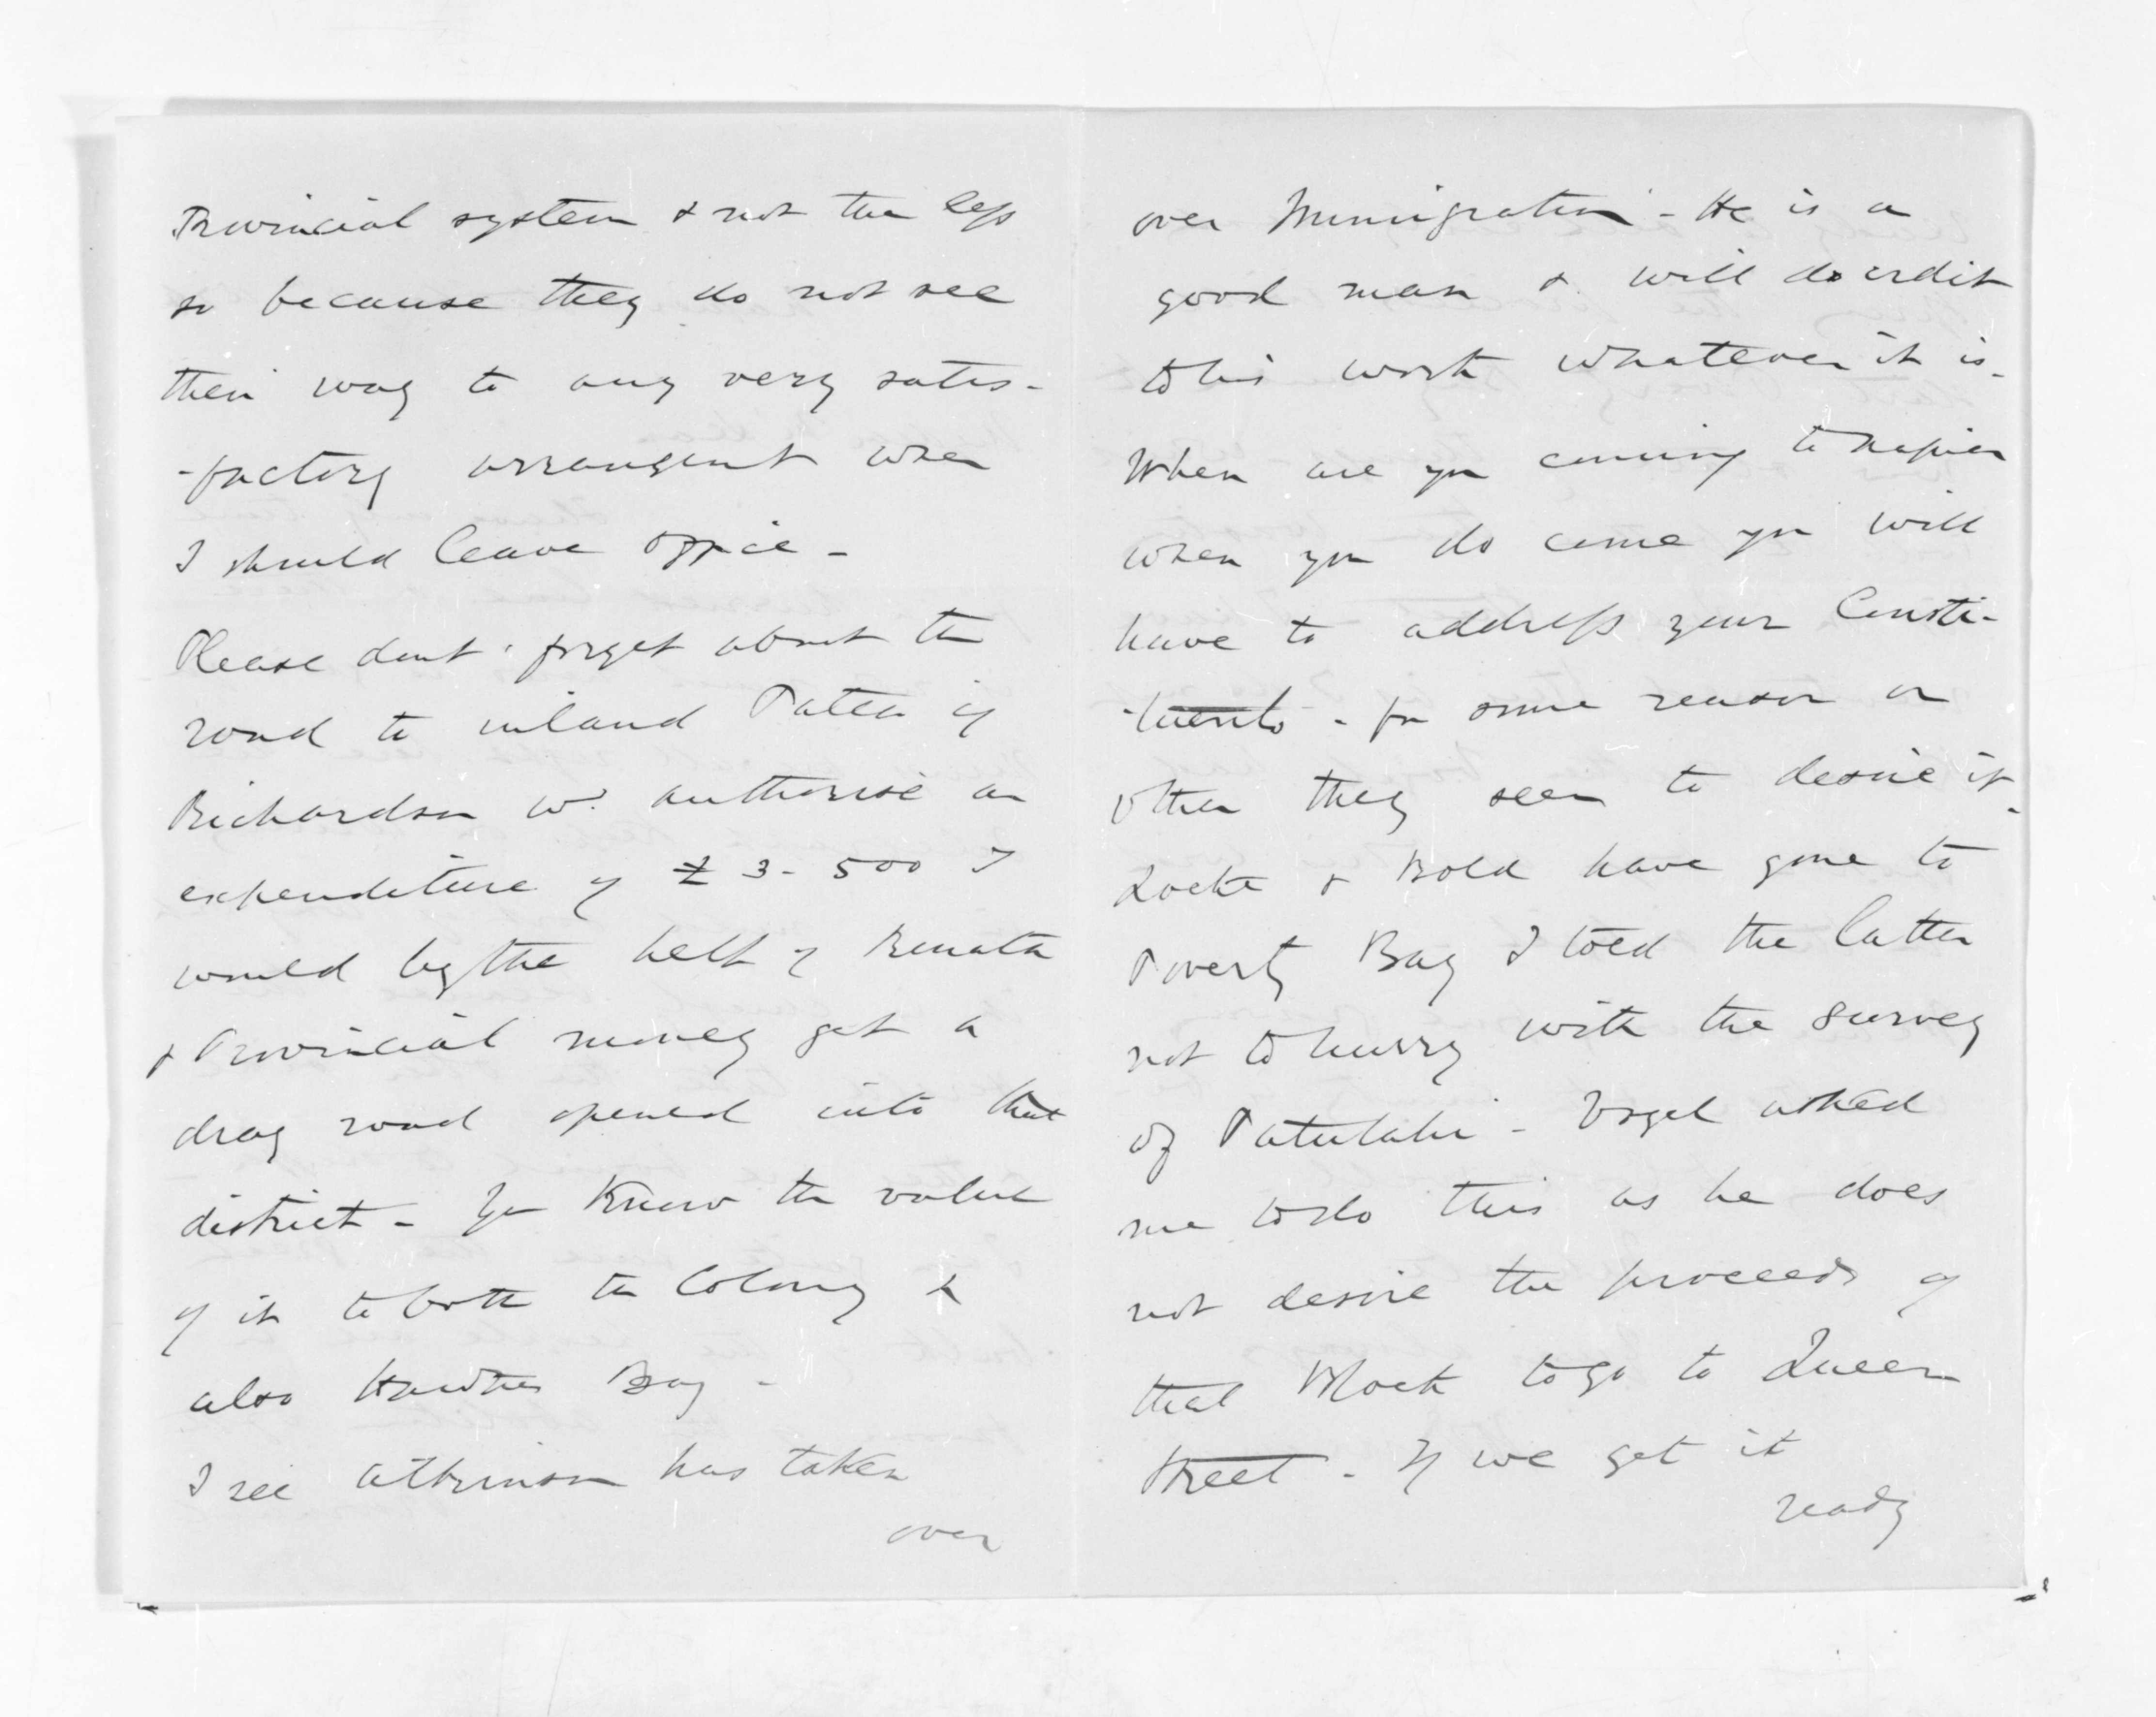 Provincial system & not the less
so because they do not see
their way to any very satis-
-factory arrangent when
I should leave office -
Please dont forget about the
road to inland Patea if
Richardson wd. authorise an
expenditure of £ 3-500 I
would by the help of Renata
& Provincial money get a
dray road opened into that
district - You know the value
of it to both the Colony &
also Hawkes Bay -
I see Atkinson has taken
over
over Immigration - He is a
good man & will do credit
to his work whatever it is.
When are you coming to Napier
when you do come you will
have to address your Consti-
-tuents - for some reason or
other they seem to desire it.
Locke & Bold have gone to
Poverty Bay I told the latter
not to hurry with the survey
of Patutahi - Vogel asked
me to do this as he does
not desire the proceeds of
that Block to go to Queen
Street - If we get it
ready